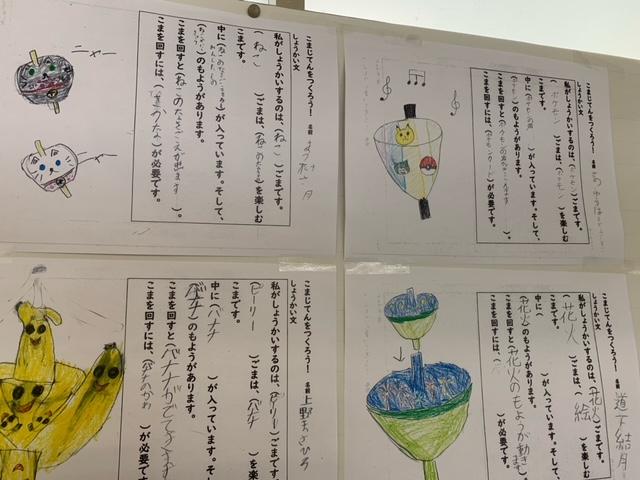 こまじてんをつくろう！ 名前
しょうかい文
私がしょうかいするのは、（ねこ）ごまです。
（ねこ）ごまは、（ねこのなき）を楽しむ
こまです。
中に（ が）が入っています。そして、
（ ）のもようがあります。
こまを回すと（ねこのなきごえが出ます）。
こまを回すには、（ ）が必要です。
ニャー
ニャー
こまじてんをつくろう！ 名前
しょうかい文
私がしょうかいするのは、（ポケモン）ごまです。
（ポケモン）ごまは、（ポケモン）を楽しむ
こまです。
中に（ポケモンの声）が入っています。そして、
（ポケモン）のもようがあります。
こまを回すと（ポケモンの声が ）。
こまを回すには、（ポケモンカード）が必要です。
こまじてんをつくろう！ 名前 上野まさひろ
しょうかい文
私がしょうかいするのは、（ピーリー）ごまです。
（ピーリー）ごまは、（バナナ）を楽
こまです。
中に（バナナ）が入っています。そし
（バナナ）のもようがあります。
こまを回すと（バナナがでてきます
こまを回すには、（バナナのかわ）が必要です。
こまじてんをつくろう！ 名前 道下結月
しょうかい文
私がしょうかいするのは、（花火）ごまです。
（花火）ごまは、（絵）を楽しむ
こまです。
中に（ ）が入っています。そして、
（花火）のもようがあります。
こまを回すと（花火のもようが動きます
こまを回すには、（ ）が必要です。